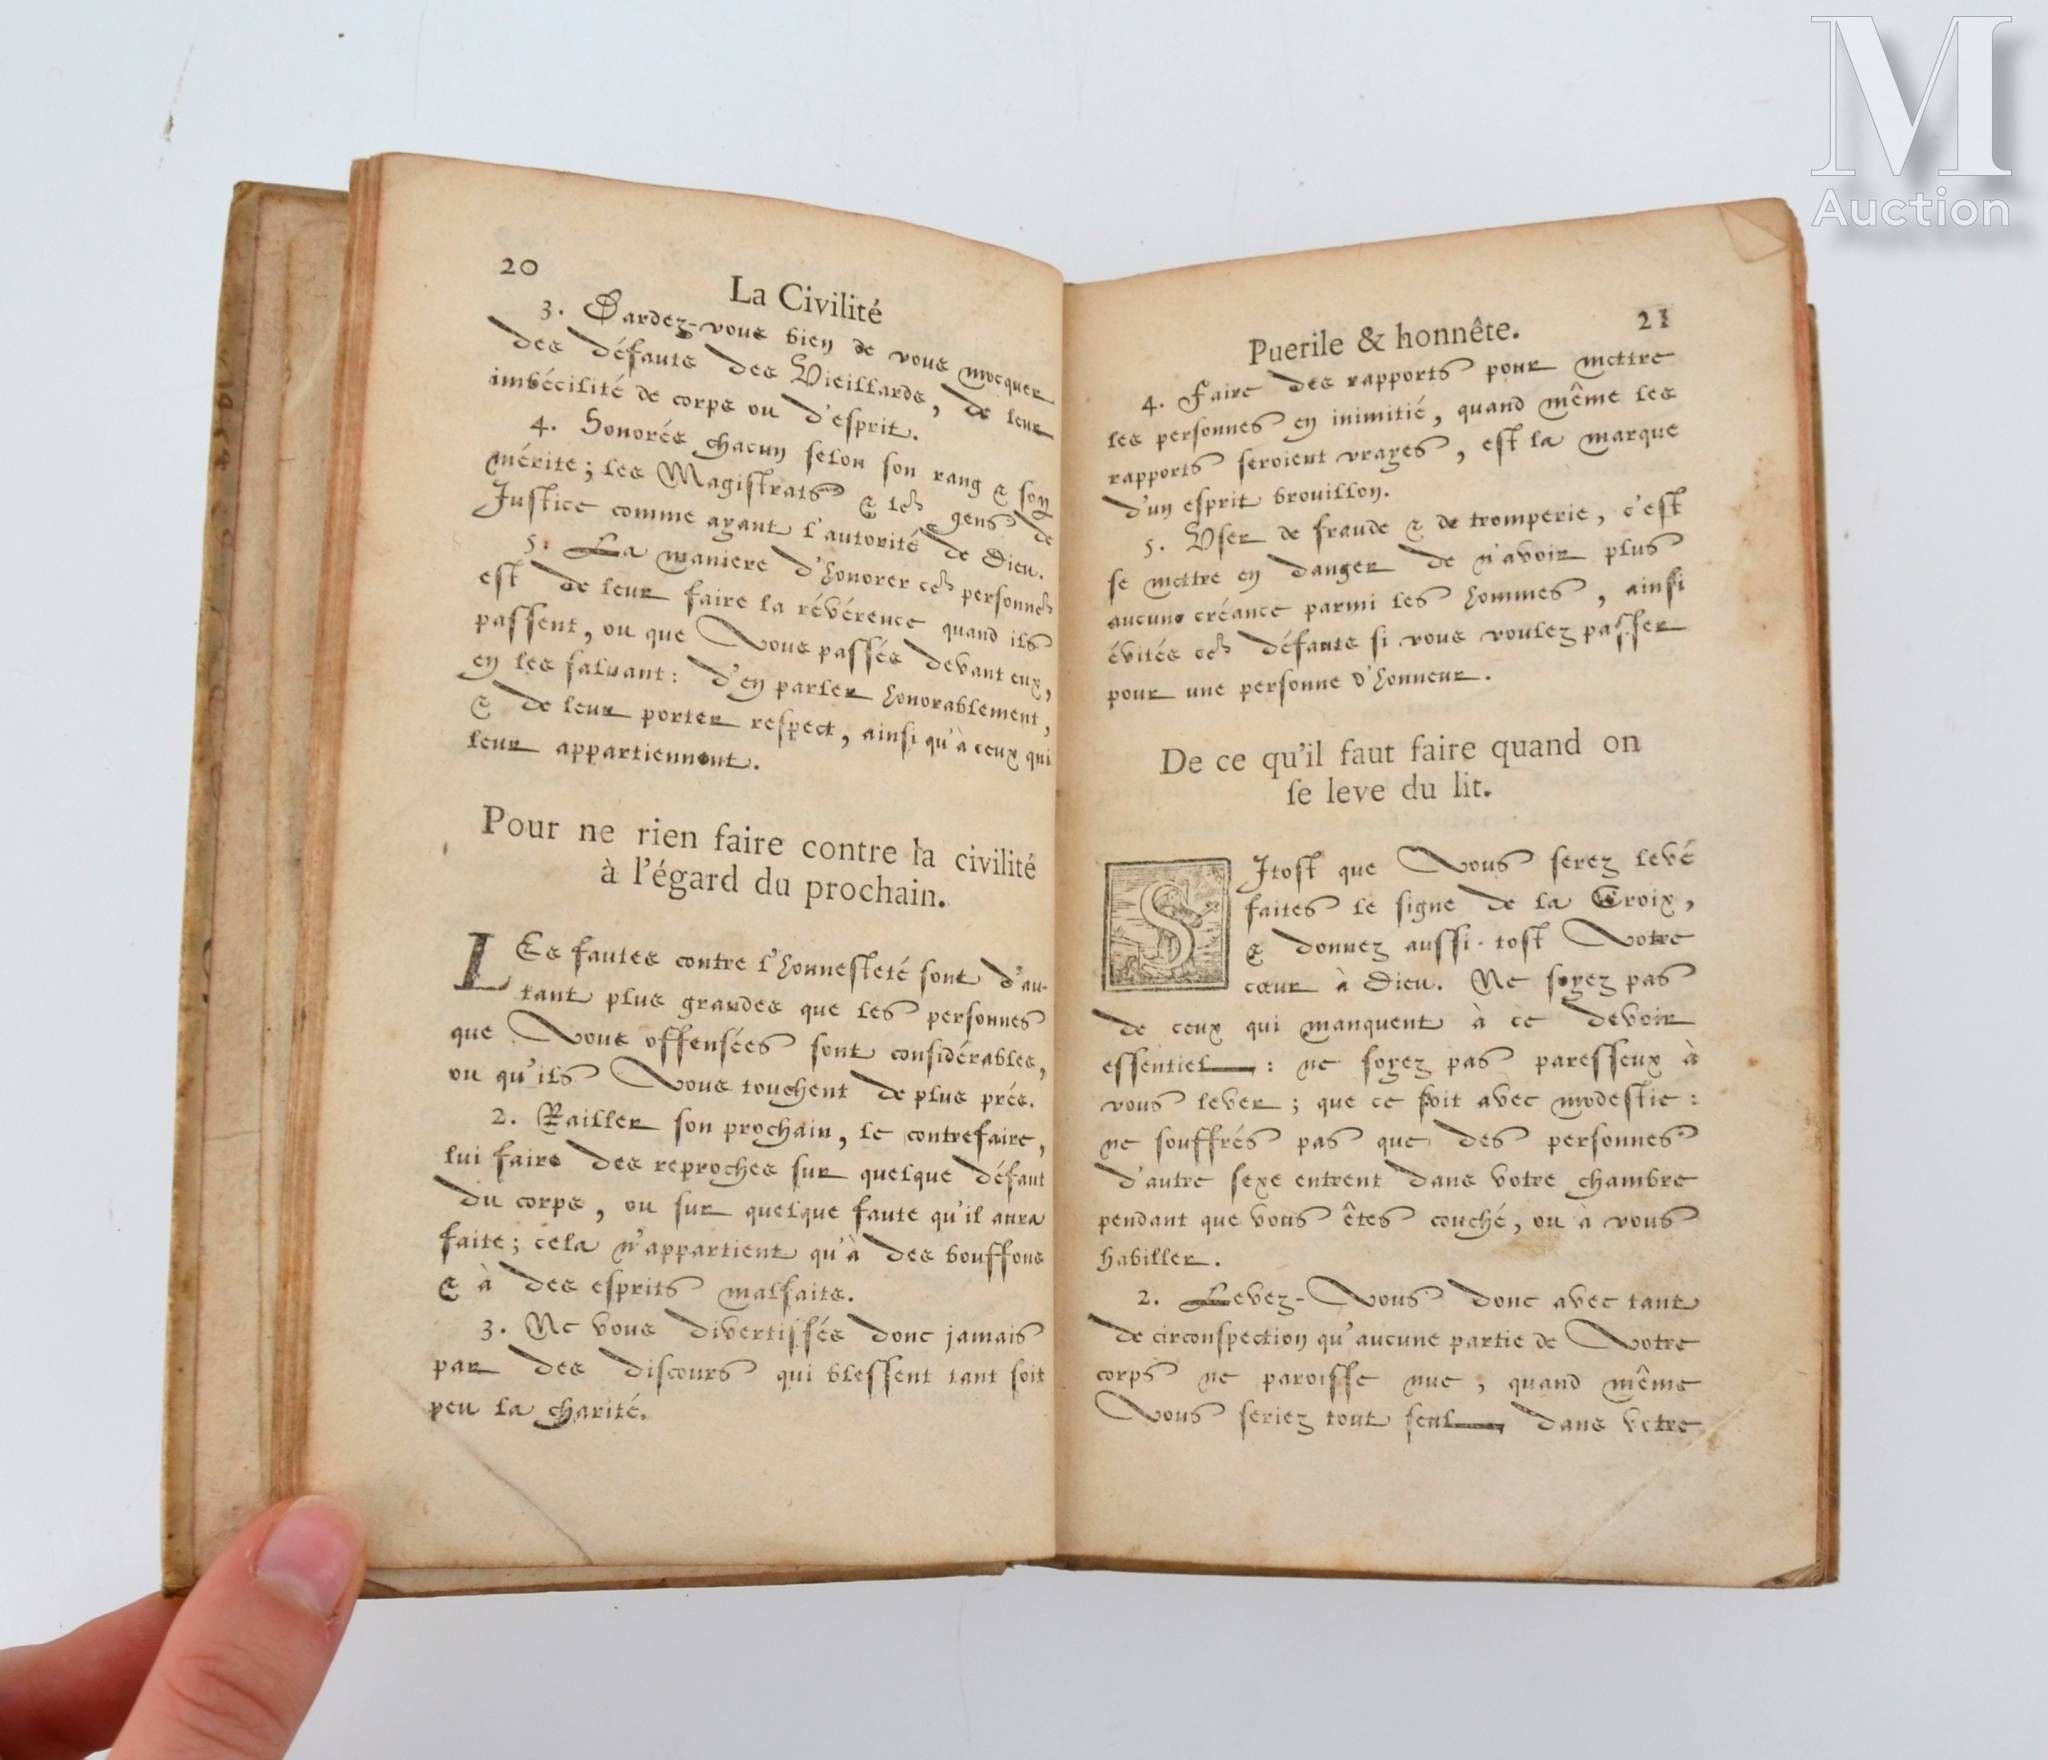 M
Auction
20
La Civilité
3. Gardez-vous bien de vous mocquer
des défauts des Vieillards, de leur
imbécilité de corps ou d'esprit.
4. Honorés chacun selon son rang & son
mérite; les Magistrats & les gens de
Justice comme ayant l'autorité de Dieu.
5. La maniere d'honorer ces personnes
est de leur faire la révérence quand ils
passent, ou que Vous passés devant eux,
en les saluant: d'en parler honorablement,
& de leur porter respect, ainsi qu'à ceux qui
leur appartiennent.
Pour ne rien faire contre la civilité
à l'égard du prochain.
LEs fautes contre l'honnesteté sont d'au-
tant plus grandes que les personnes
que Vous offensées sont considérables,
ou qu'ils Vous touchent de plus prés.
2. Railler son prochain, le contrefaire,
lui faire des reproches sur quelque défaut
du corps, ou sur quelque faute qu'il aura
faite; cela n'appartient qu'à des bouffons
& à des esprits malfaits.
3. Ne vous divertissés donc jamais
par des discours qui blessent tant soit
peu la charité.
Puerile & honnête. 21
4. Faire des rapports pour mettre
les personnes en inimitié, quand même les
rapports seroient vrayes, est la marque
d'un esprit brouillon.
5. User de fraude & de tromperie, c'est
se mettre en danger de n'avoir plus
aucune créance parmi les hommes, ainsi
évités ces défauts si vous voulez passer
pour une personne d'honneur.
De ce qu'il faut faire quand on
ſe leve du lit.
SItost que Vous serez levé
faites le signe de la Croix,
& donnez aussi-tost Votre
cœur à Dieu. Ne soyez pas
de ceux qui manquent à ce devoir
essentiel: ne soyez pas paresseux à
vous lever; que ce soit avec modestie:
ne souffrés pas que des personnes
d'autre sexe entrent dans votre chambre
pendant que vous êtes couché, ou à vous
habiller.
2. Levez-Vous donc avec tant
de circonspection qu'aucune partie de Votre
corps ne paroisse nue, quand même
Vous seriez tout seul dans votre